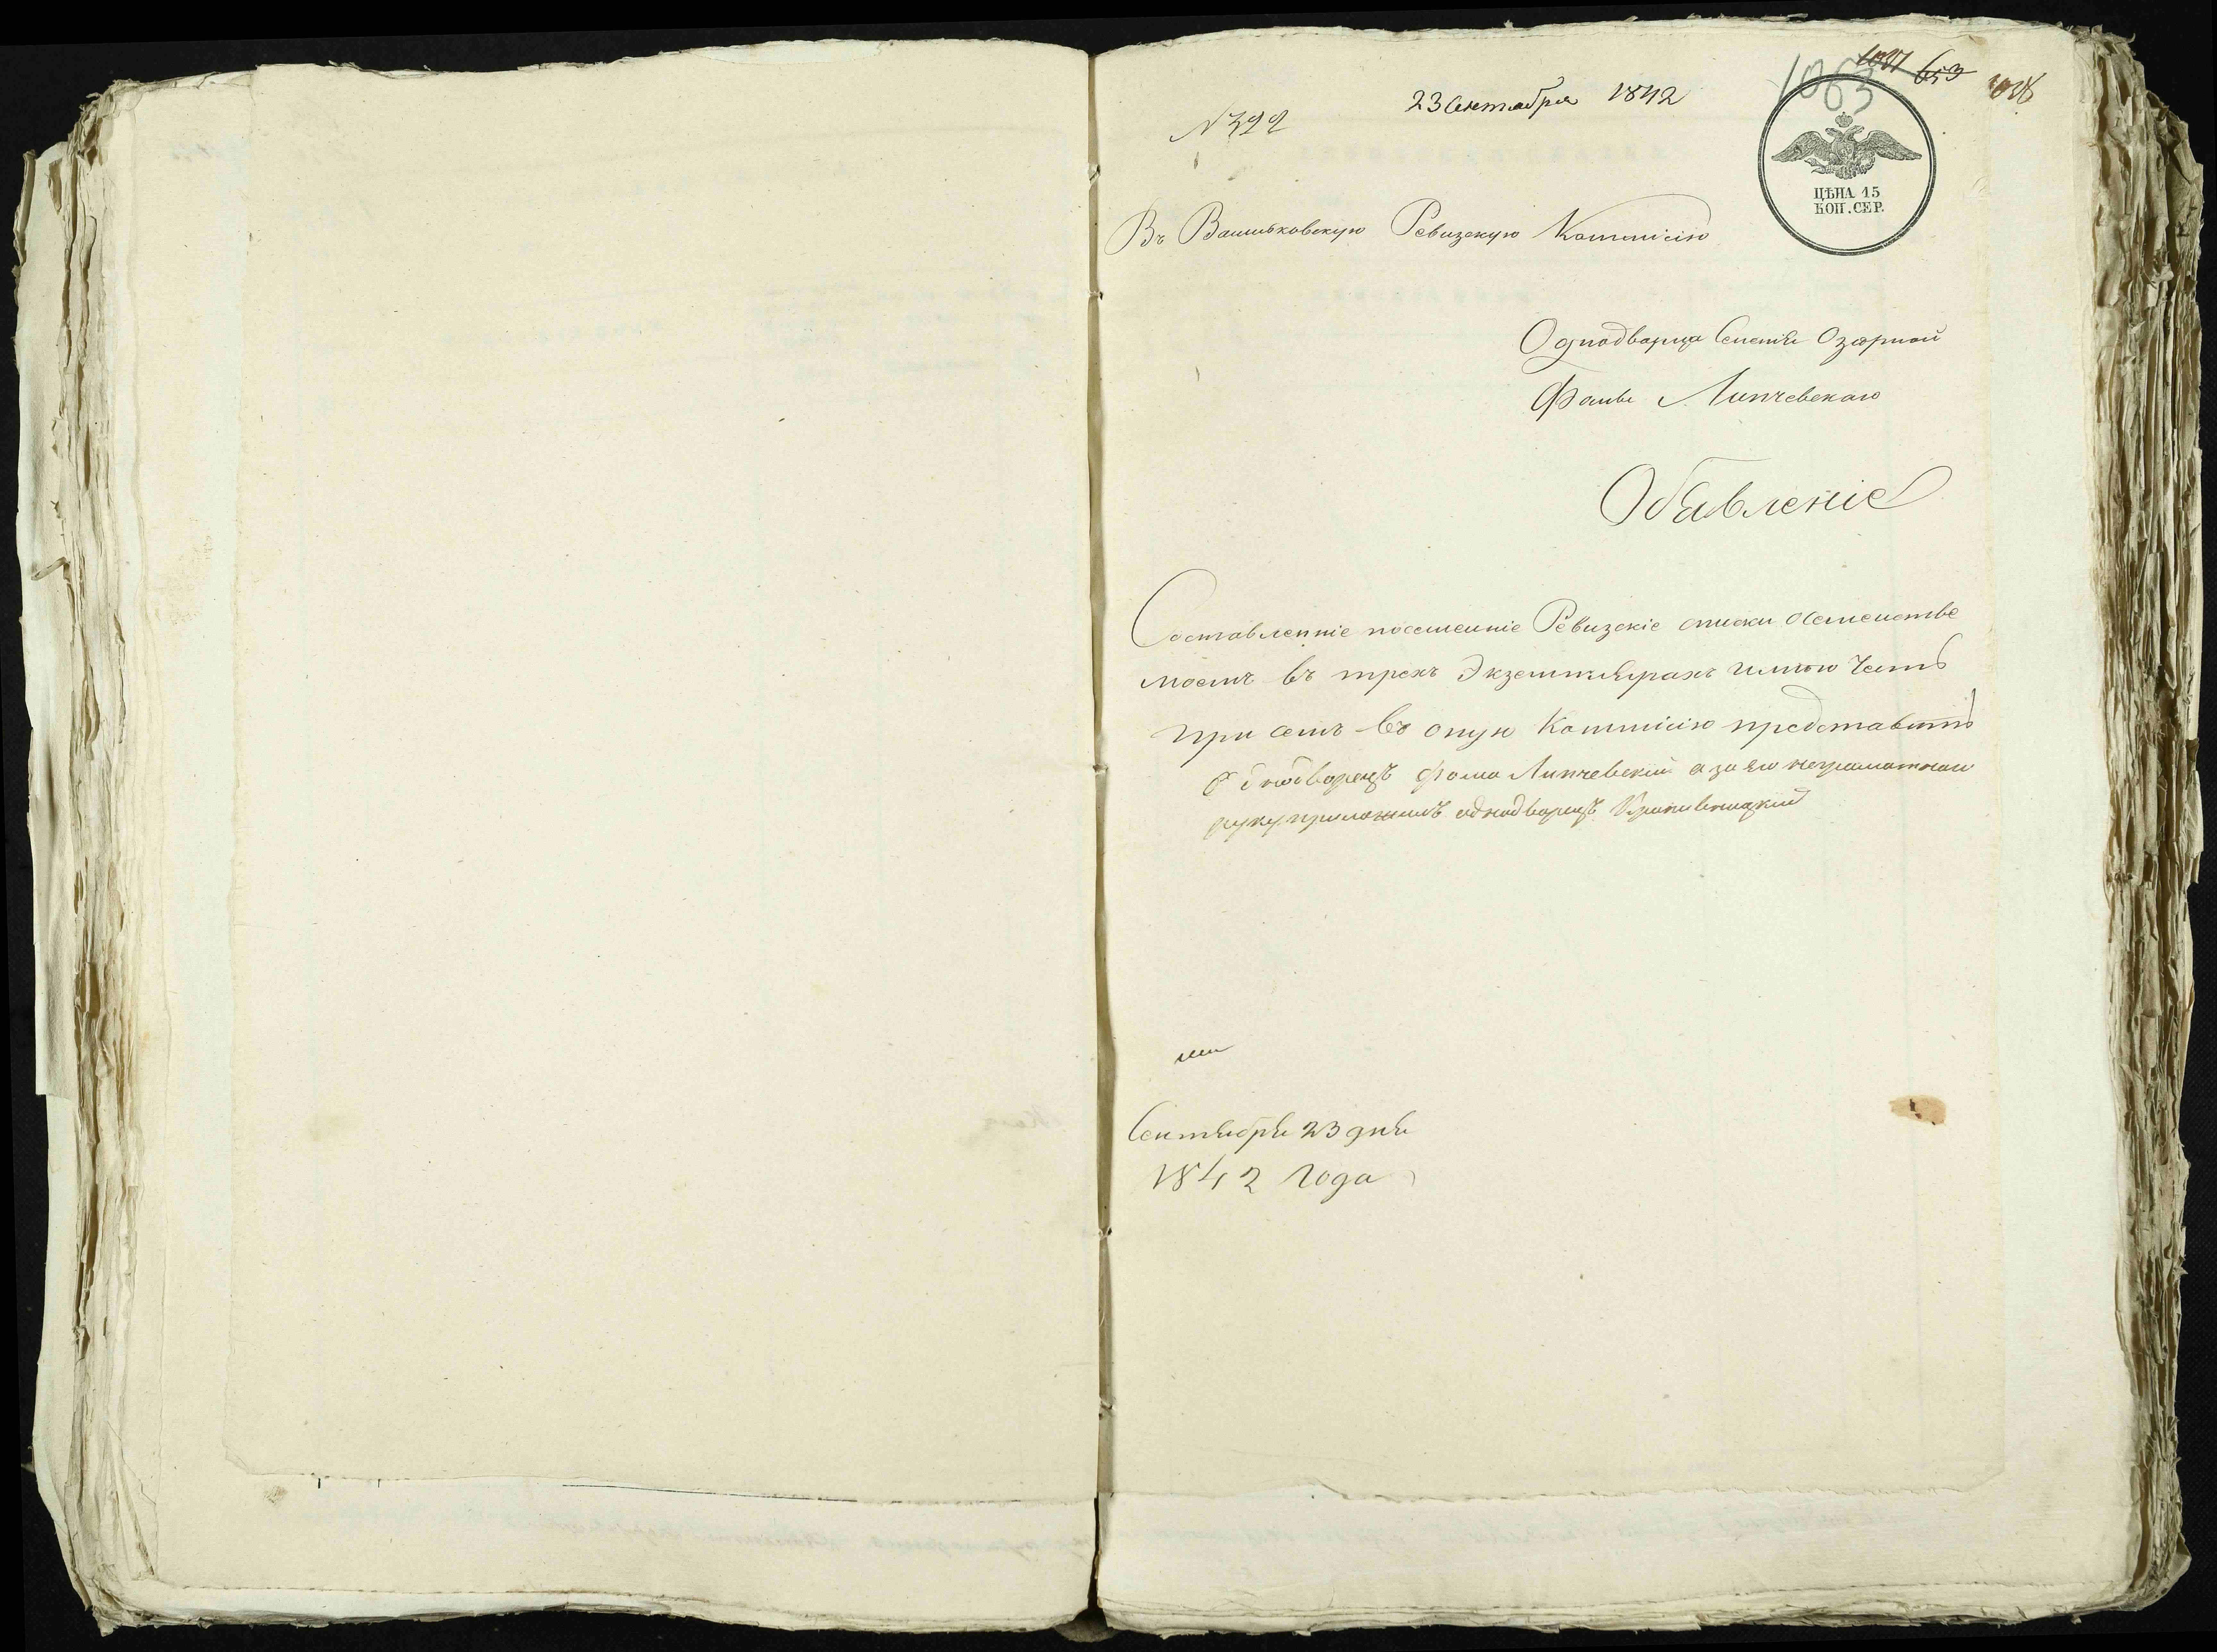 1063 1027 653 1028
№ 322 23 Сентября 1842
ЦѢНА 15
КОП. СЕР.
Въ Васильковскую Ревизскую Коммисію
Однодворца Селенія Озерной
Фомы Липчевскаго
Обявленіе
Составленніе посемейніе Ревизскіе списки осемействе
моемъ въ трехъ Экземплярахъ имѣю Честь
при семъ въ оную Коммисію представить
Однодворецъ Фома Липчевский а за его неграматнаго
руку приложилъ однодворецъ Кропивницкий
Сентября 23 дня
1842 Года